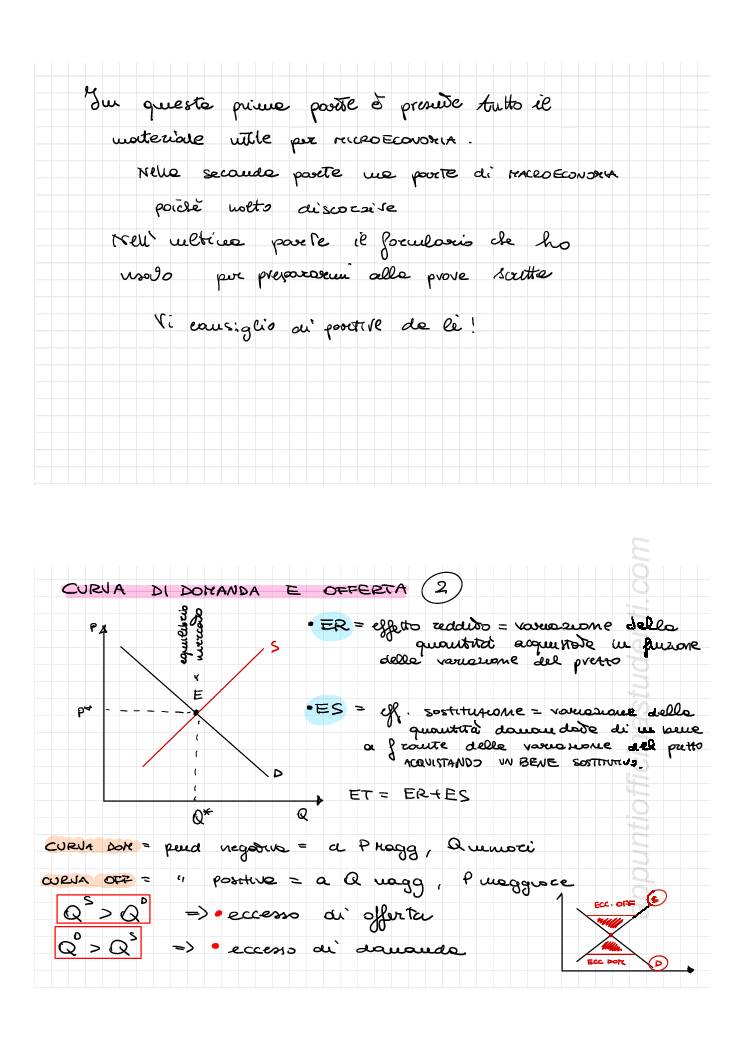 In questa prima parte è presente tutto il
materiale utile per MICROECONOMIA.
Nella seconda parte una parte di MACROECONOMIA
poiché molto discorsiva
Nell'ultima parte il formulario che ho
usato per prepararmi alla prova scritta
Vi consiglio di partire da lì!
CURVA DI DOMANDA E OFFERTA 2
P
equilibrio
mercato
S
E
P*
D
Q*
Q
• ER = effetto reddito = variazione della
quantità acquistata in funzione
della variazione del prezzo
• ES = eff. SOSTITUZIONE = variazione della
quantità domandata di un bene
a fronte della variazione del prezzo
ACQUISTANDO UN BENE SOSTITUTIVO.
ET = ER+ES
CURVA DOM = pend negativa = a P magg, Q minori
CURVA OFF = " positiva = a Q magg, P maggiore
Qˢ > Qᴰ => • eccesso di offerta
Qᴰ > Qˢ => • eccesso di domanda
ECC. OFF
S
ECC. DOM
D
opuntiofficinastudenti.com